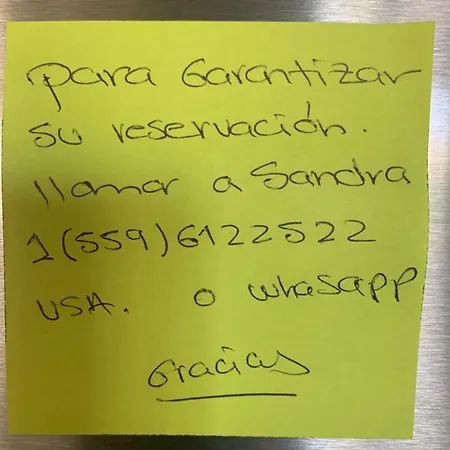 para Garantizar
su reservación.
llamar a Sandra
1(559)6122522
USA. o whasapp
Gracias